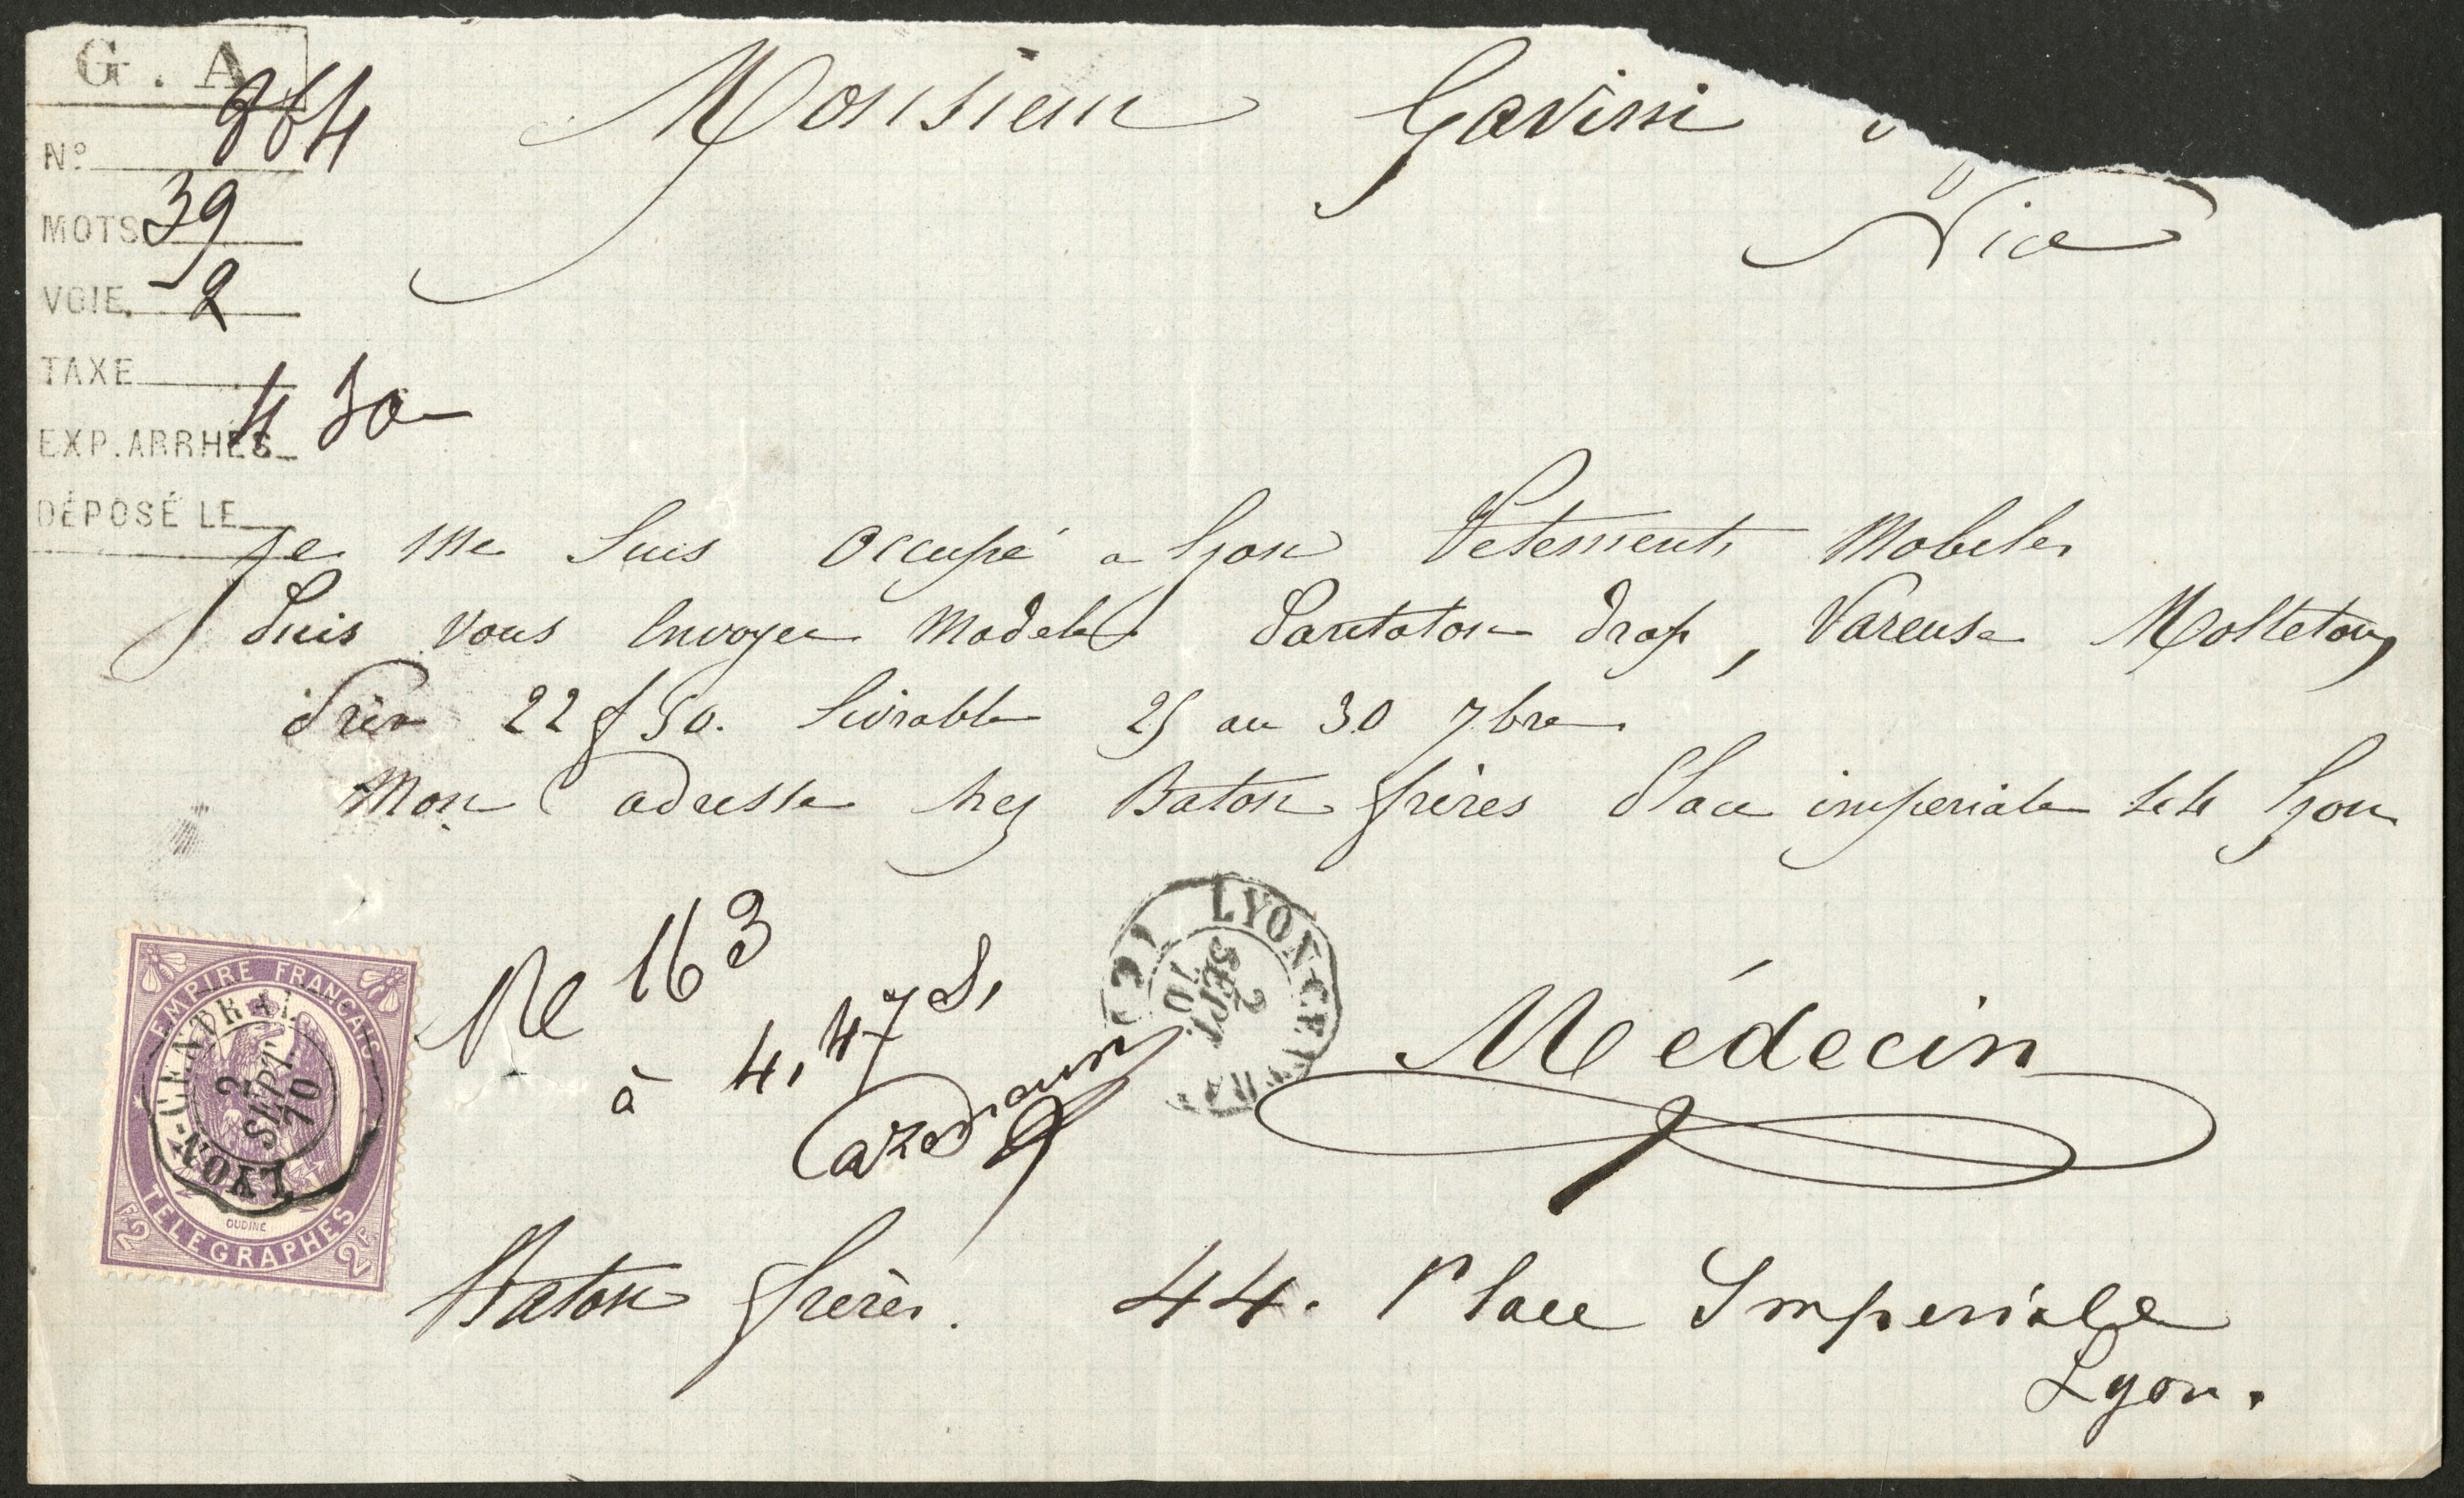 G. A
N° 864
MOTS 39
VOIE. 2
TAXE
4 50
EXP. ARRHES
DÉPOSÉ LE
Monsieur Gavini
Nice
Je me suis occupé a Lyon Vetements Mobiles
Puis vous envoyer Modele Pantalon drap, Vareuse Molleton,
Prix 22 f 50. livrable 25 au 30 7bre
Mon adresse chez Baton frères Place imperiale 44 Lyon
16 3
à 4,47 S,
LYON-CENTRAL
2
SEPT.
70
Médecin
EMPIRE FRANÇAIS
LYON-CENTRAL
2
SEPT.
70
OUDINÉ
TELEGRAPHES
F.2
2F.
Baton frères. 44. Place Imperiale
Lyon.